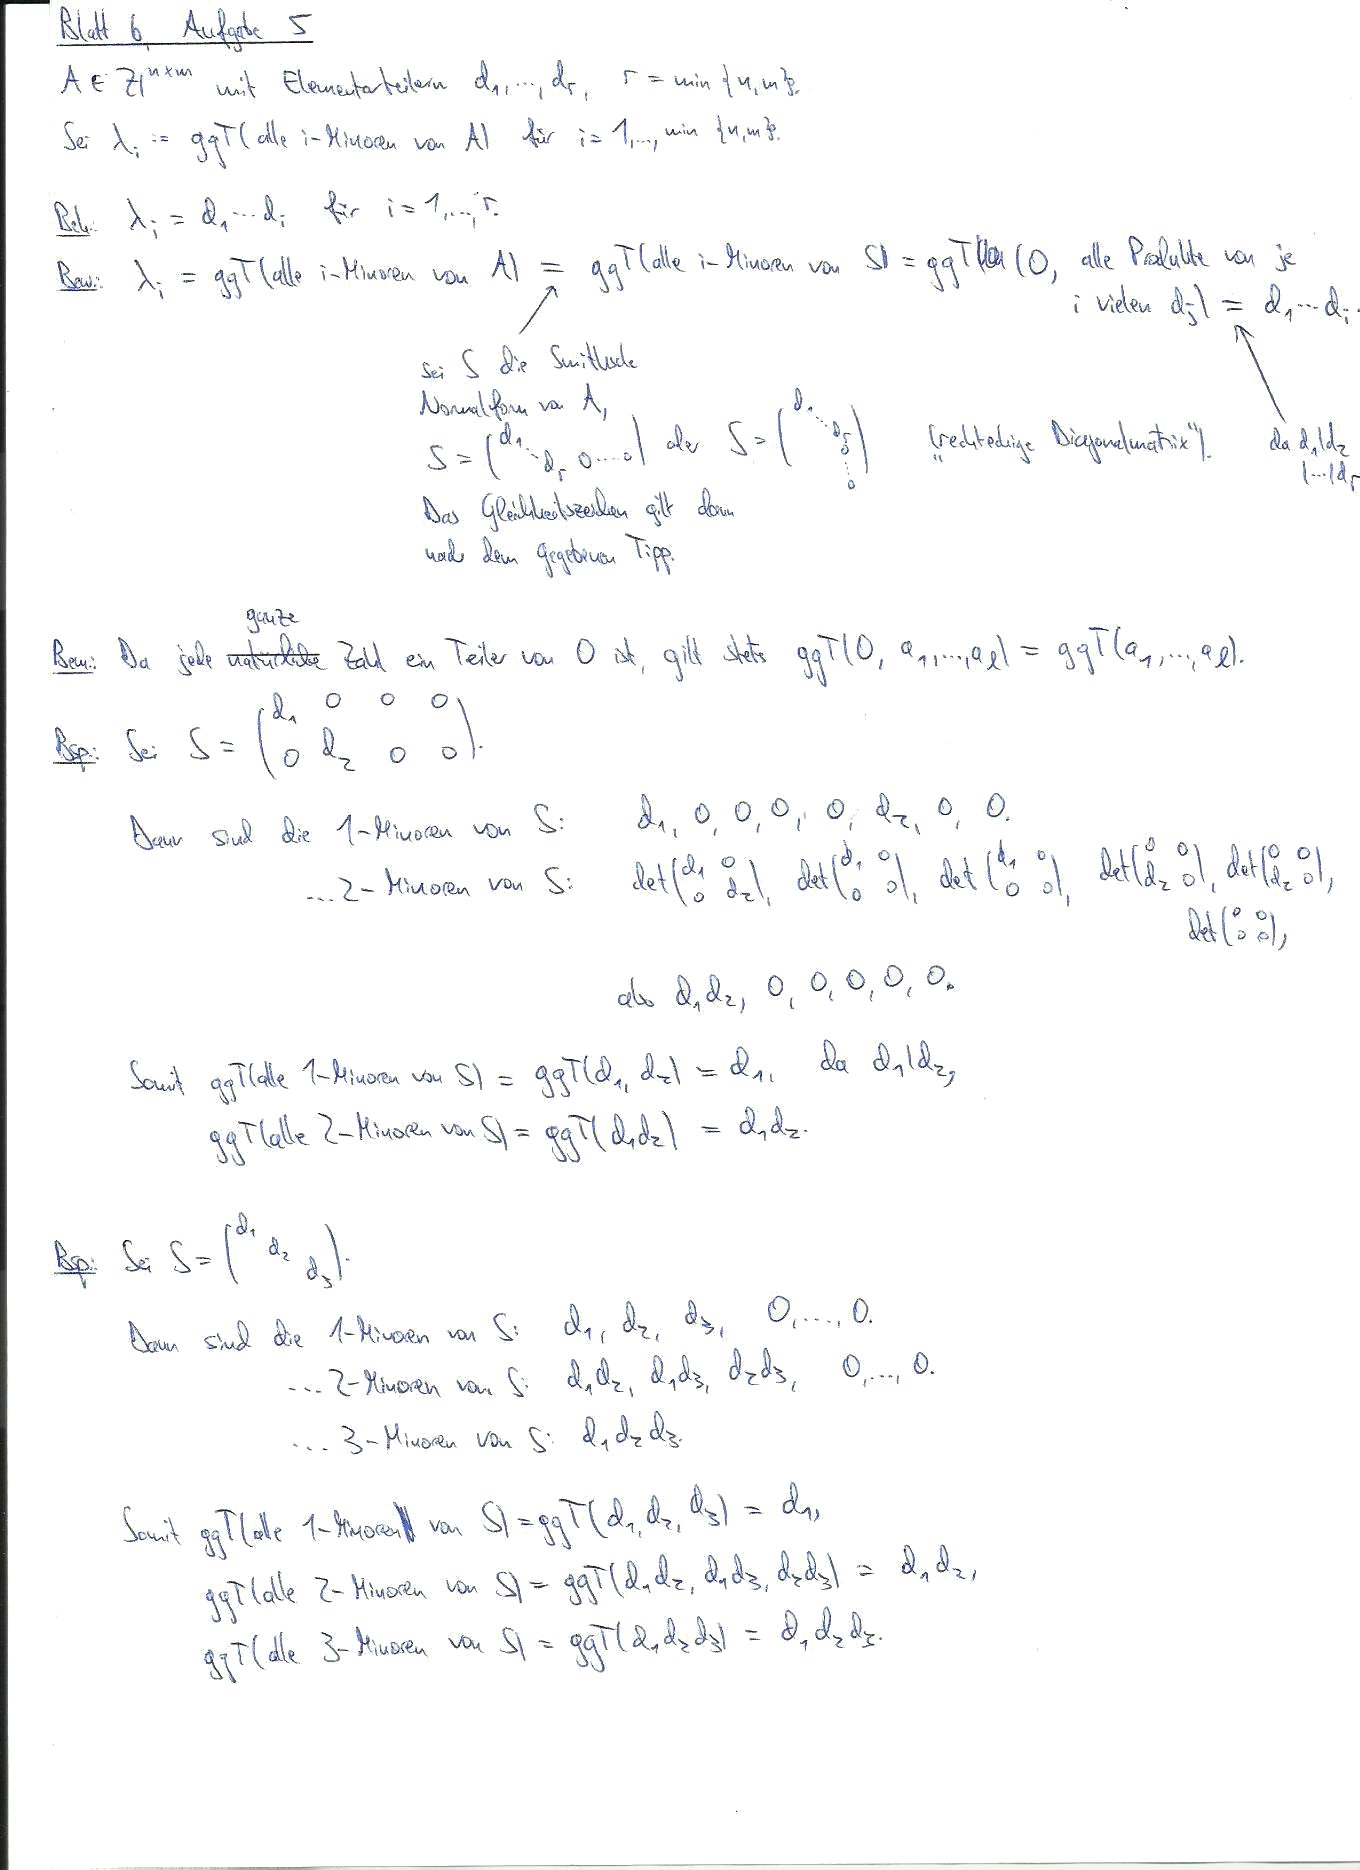 Blatt 6, Aufgabe 5
A ∈ ℤ^{n×m} mit Elementarteilern d₁,…,dᵣ, r = min{n,m}.
Sei λᵢ := ggT(alle i-Minoren von A) für i = 1,…, min{n,m}.
Beh.: λᵢ = d₁⋯dᵢ für i = 1,…,r.
Bew.: λᵢ = ggT(alle i-Minoren von A) = ggT(alle i-Minoren von S) = ggT(0, alle Produkte von je
i vielen dⱼ) = d₁⋯dᵢ.
Sei S die Smithsche
Normalform von A,
S = (d₁ ⋱ dᵣ 0⋯0) oder S = (d₁ ⋱ dᵣ 0 ⋮ 0) („rechteckige Diagonalmatrix“). da d₁|d₂
|…|dᵣ
Das Gleichheitszeichen gilt dann
nach dem gegebenen Tipp.
ganze
Bem.: Da jede natürliche Zahl ein Teiler von 0 ist, gilt stets ggT(0, a₁,…,aₗ) = ggT(a₁,…,aₗ).
Bsp.: Sei S = (d₁ 0 0 0
0 d₂ 0 0).
Dann sind die 1-Minoren von S: d₁, 0, 0, 0, 0, d₂, 0, 0.
…2-Minoren von S: det(d₁ 0 / 0 d₂), det(d₁ 0 / 0 0), det(d₁ 0 / 0 0), det(0 0 / d₂ 0), det(0 0 / d₂ 0),
det(0 0 / 0 0),
also d₁d₂, 0, 0, 0, 0, 0.
Somit ggT(alle 1-Minoren von S) = ggT(d₁, d₂) = d₁, da d₁|d₂,
ggT(alle 2-Minoren von S) = ggT(d₁d₂) = d₁d₂.
Bsp.: Sei S = (d₁ d₂ d₃).
Dann sind die 1-Minoren von S: d₁, d₂, d₃, 0,…,0.
…2-Minoren von S: d₁d₂, d₁d₃, d₂d₃, 0,…,0.
…3-Minoren von S: d₁d₂d₃.
Somit ggT(alle 1-Minoren von S) = ggT(d₁, d₂, d₃) = d₁,
ggT(alle 2-Minoren von S) = ggT(d₁d₂, d₁d₃, d₂d₃) = d₁d₂,
ggT(alle 3-Minoren von S) = ggT(d₁d₂d₃) = d₁d₂d₃.